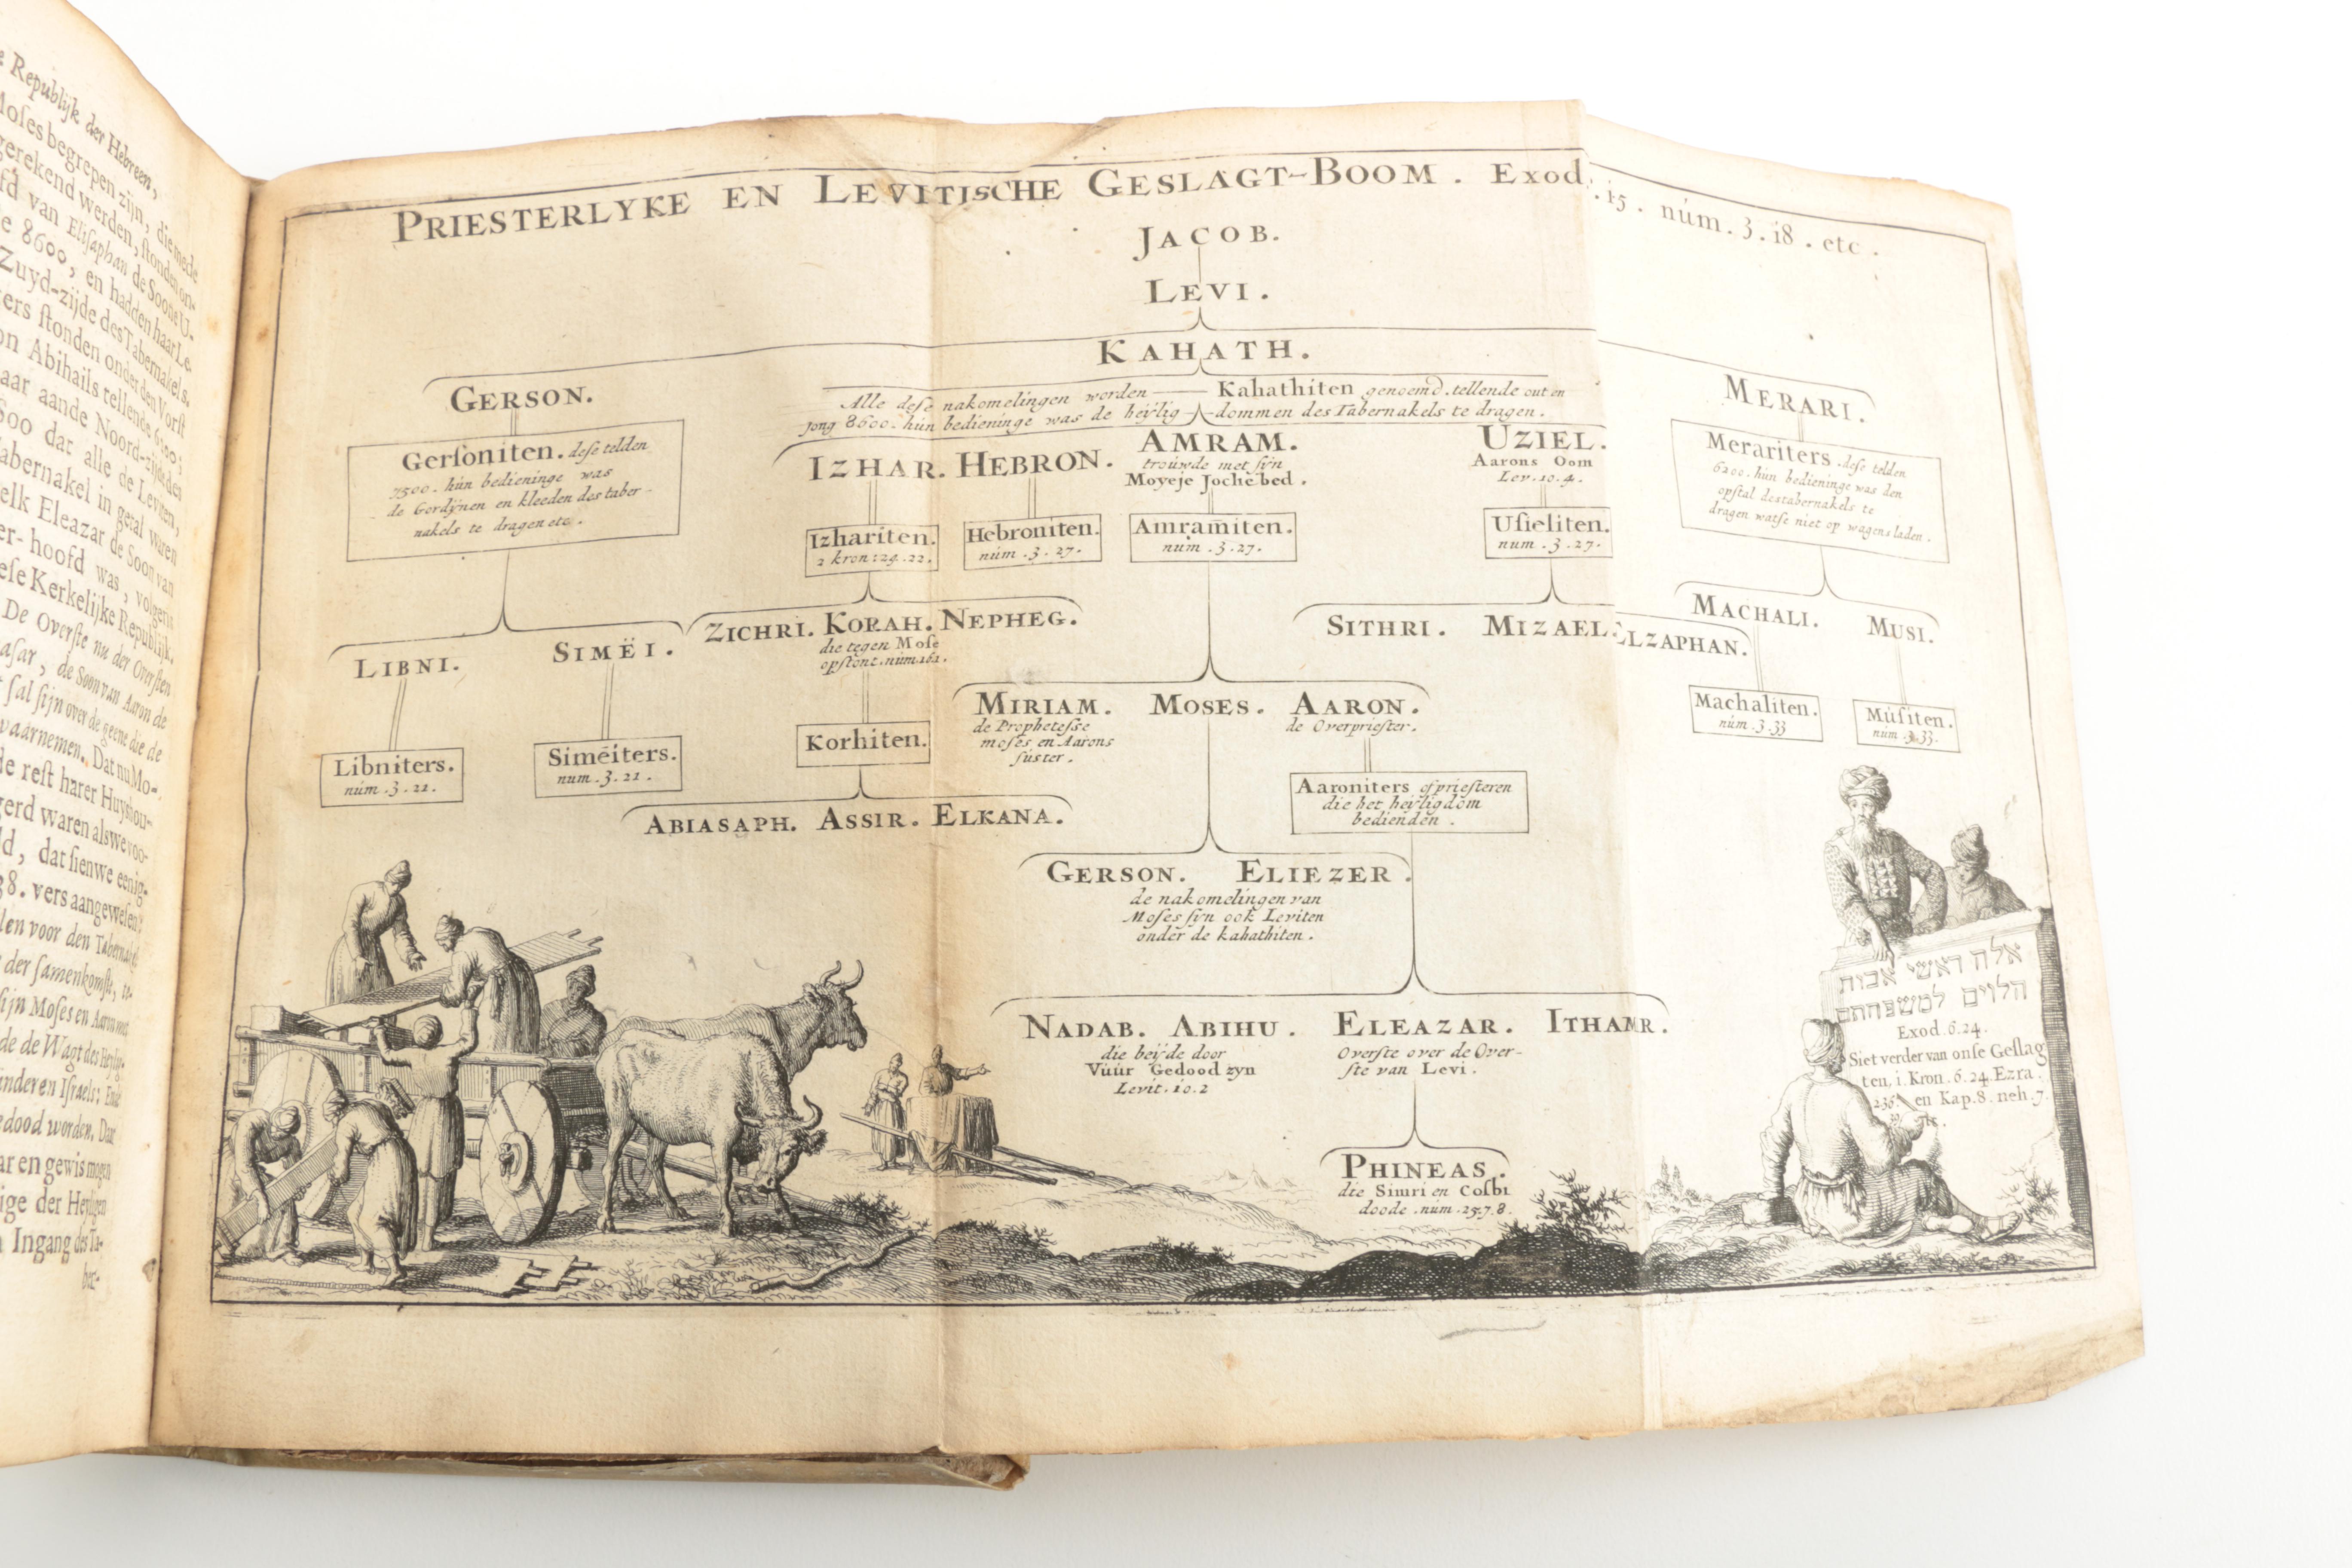 e Republijk der Hebreen,
Moses begrepen zijn, die mede
gerekend werden, stonden on-
fd van Elisaphan de Soone U-
e 8600, en hadden haar Le-
Zuyd-zijde des Tabernakels.
ers stonden onder den Vorst
on Abihails tellende 6200;
aar aande Noord-zijde des
Soo dat alle de Leviten,
abernakel in getal waren
elk Eleazar de Soon van
er-hoofd was, volgens
ese Kerkelijke Republijk.
De Overste nu der Oversten
asar, de Soon van Aaron de
sal sijn over de geene die de
waarnemen. Dat nu Mo-
de rest harer Huyshou-
gerd waren als we voo-
d, dat sien we eenig-
38. vers aangewesen:
len voor den Tabernakel
der samenkomst, te-
sijn Moses en Aaron
de de Wagt des Heylig-
inderen Israels; Ende
edood worden. Dat
ar en gewis mogen
ige der Heyligen
n Ingang des Ta-
ber-
PRIESTERLYKE EN LEVITISCHE GESLAGT-BOOM. EXOD. .15. núm.3.18. etc.
JACOB.
LEVI.
KAHATH.
GERSON.
MERARI.
Alle dese nakomelingen worden Kahathiten genoemd. tellende out en
jong 8600. hun bedieninge was de heylig-dommen des Tabernakels te dragen.
Gersoniten. dese telden
7500. hún bedieninge was
de Gordÿnen en kleeden des taber-
nakels te dragen etc.
IZHAR. HEBRON. AMRAM. UZIEL.
troúwde met sÿn
Moyeje Jochebed.
Aarons Oom
Lev.10.4.
Merariters. dese telden
6200. hún bedieninge was den
opstal des tabernakels te
dragen watse niet op wagens laden.
Izhariten.
2 kron:24.22.
Hebroniten.
núm.3.27.
Amramiten.
núm.3.27.
Usieliten.
num.3.27.
LIBNI. SIMËI.
ZICHRI. KORAH. NEPHEG.
die tegen Mose
opstont. núm.16.1.
SITHRI. MIZAEL. ELZAPHAN.
MACHALI. MUSI.
Libniters.
núm.3.21.
Simëiters.
num.3.21.
Korhiten.
MIRIAM. MOSES. AARON.
de Prophetesse
moses en Aarons
súster.
de Overpriester.
Machaliten.
núm.3.33
Músiten.
num.3.33.
Aaroniters of priesteren
die het heyligdom
bedienden.
ABIASAPH. ASSIR. ELKANA.
GERSON. ELIEZER.
de nakomelingen van
Moses sÿn ook Leviten
onder de kahathiten.
NADAB. ABIHU. ELEAZAR. ITHAMR.
die beÿde door
Vúúr Gedood zyn
Levit.10.2
Overste over de Over-
ste van Levi.
PHINEAS.
die Simri en Cosbi
doode. núm.25.7.8.
אלה ראשי אבות
הלוים למשפחתם
Exod.6.24.
Siet verder van onse Geslag
ten, 1.Kron.6.24. Ezra.
2.36. en Kap.8. neh.7.
39. etc.